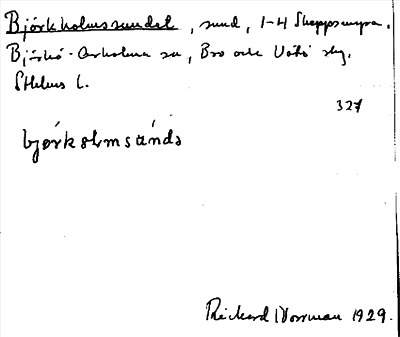 Björkholmssundet, sund, 1-4 Skeppsmyra.
Björkö-Arholma sn, Bro och Vätö skg.
Sthlms l.
327
bjørkolmsúndə
Rickard Norrman 1929.